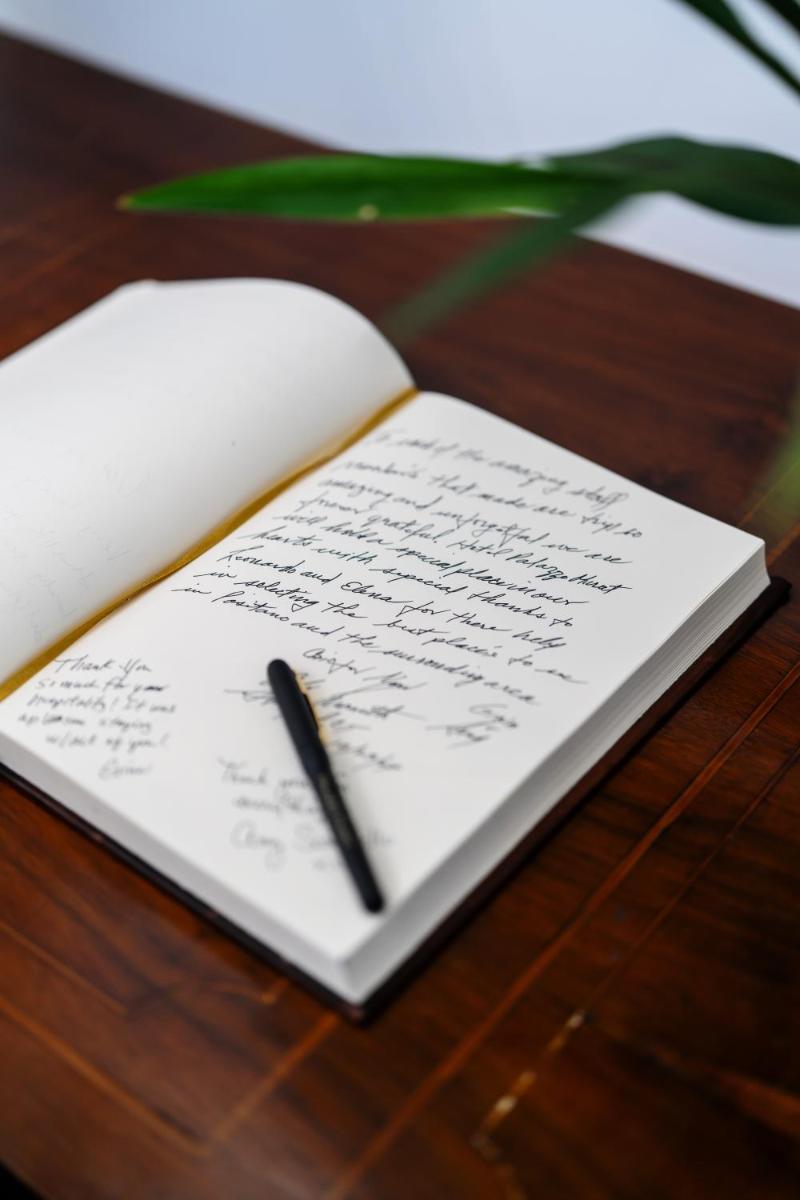 To each of the amazing staff
members that made are trip so
amazing and unforgetful we are
forever grateful Hotel Palazzo Murat
will hold a special place in our
hearts with special thanks to
Leonardo and Elena for there help
in selecting the best places to
in Positano and the surrounding area
Thank you
so much for your
hospitality! It was
staying
of you!
Thank you
Amy